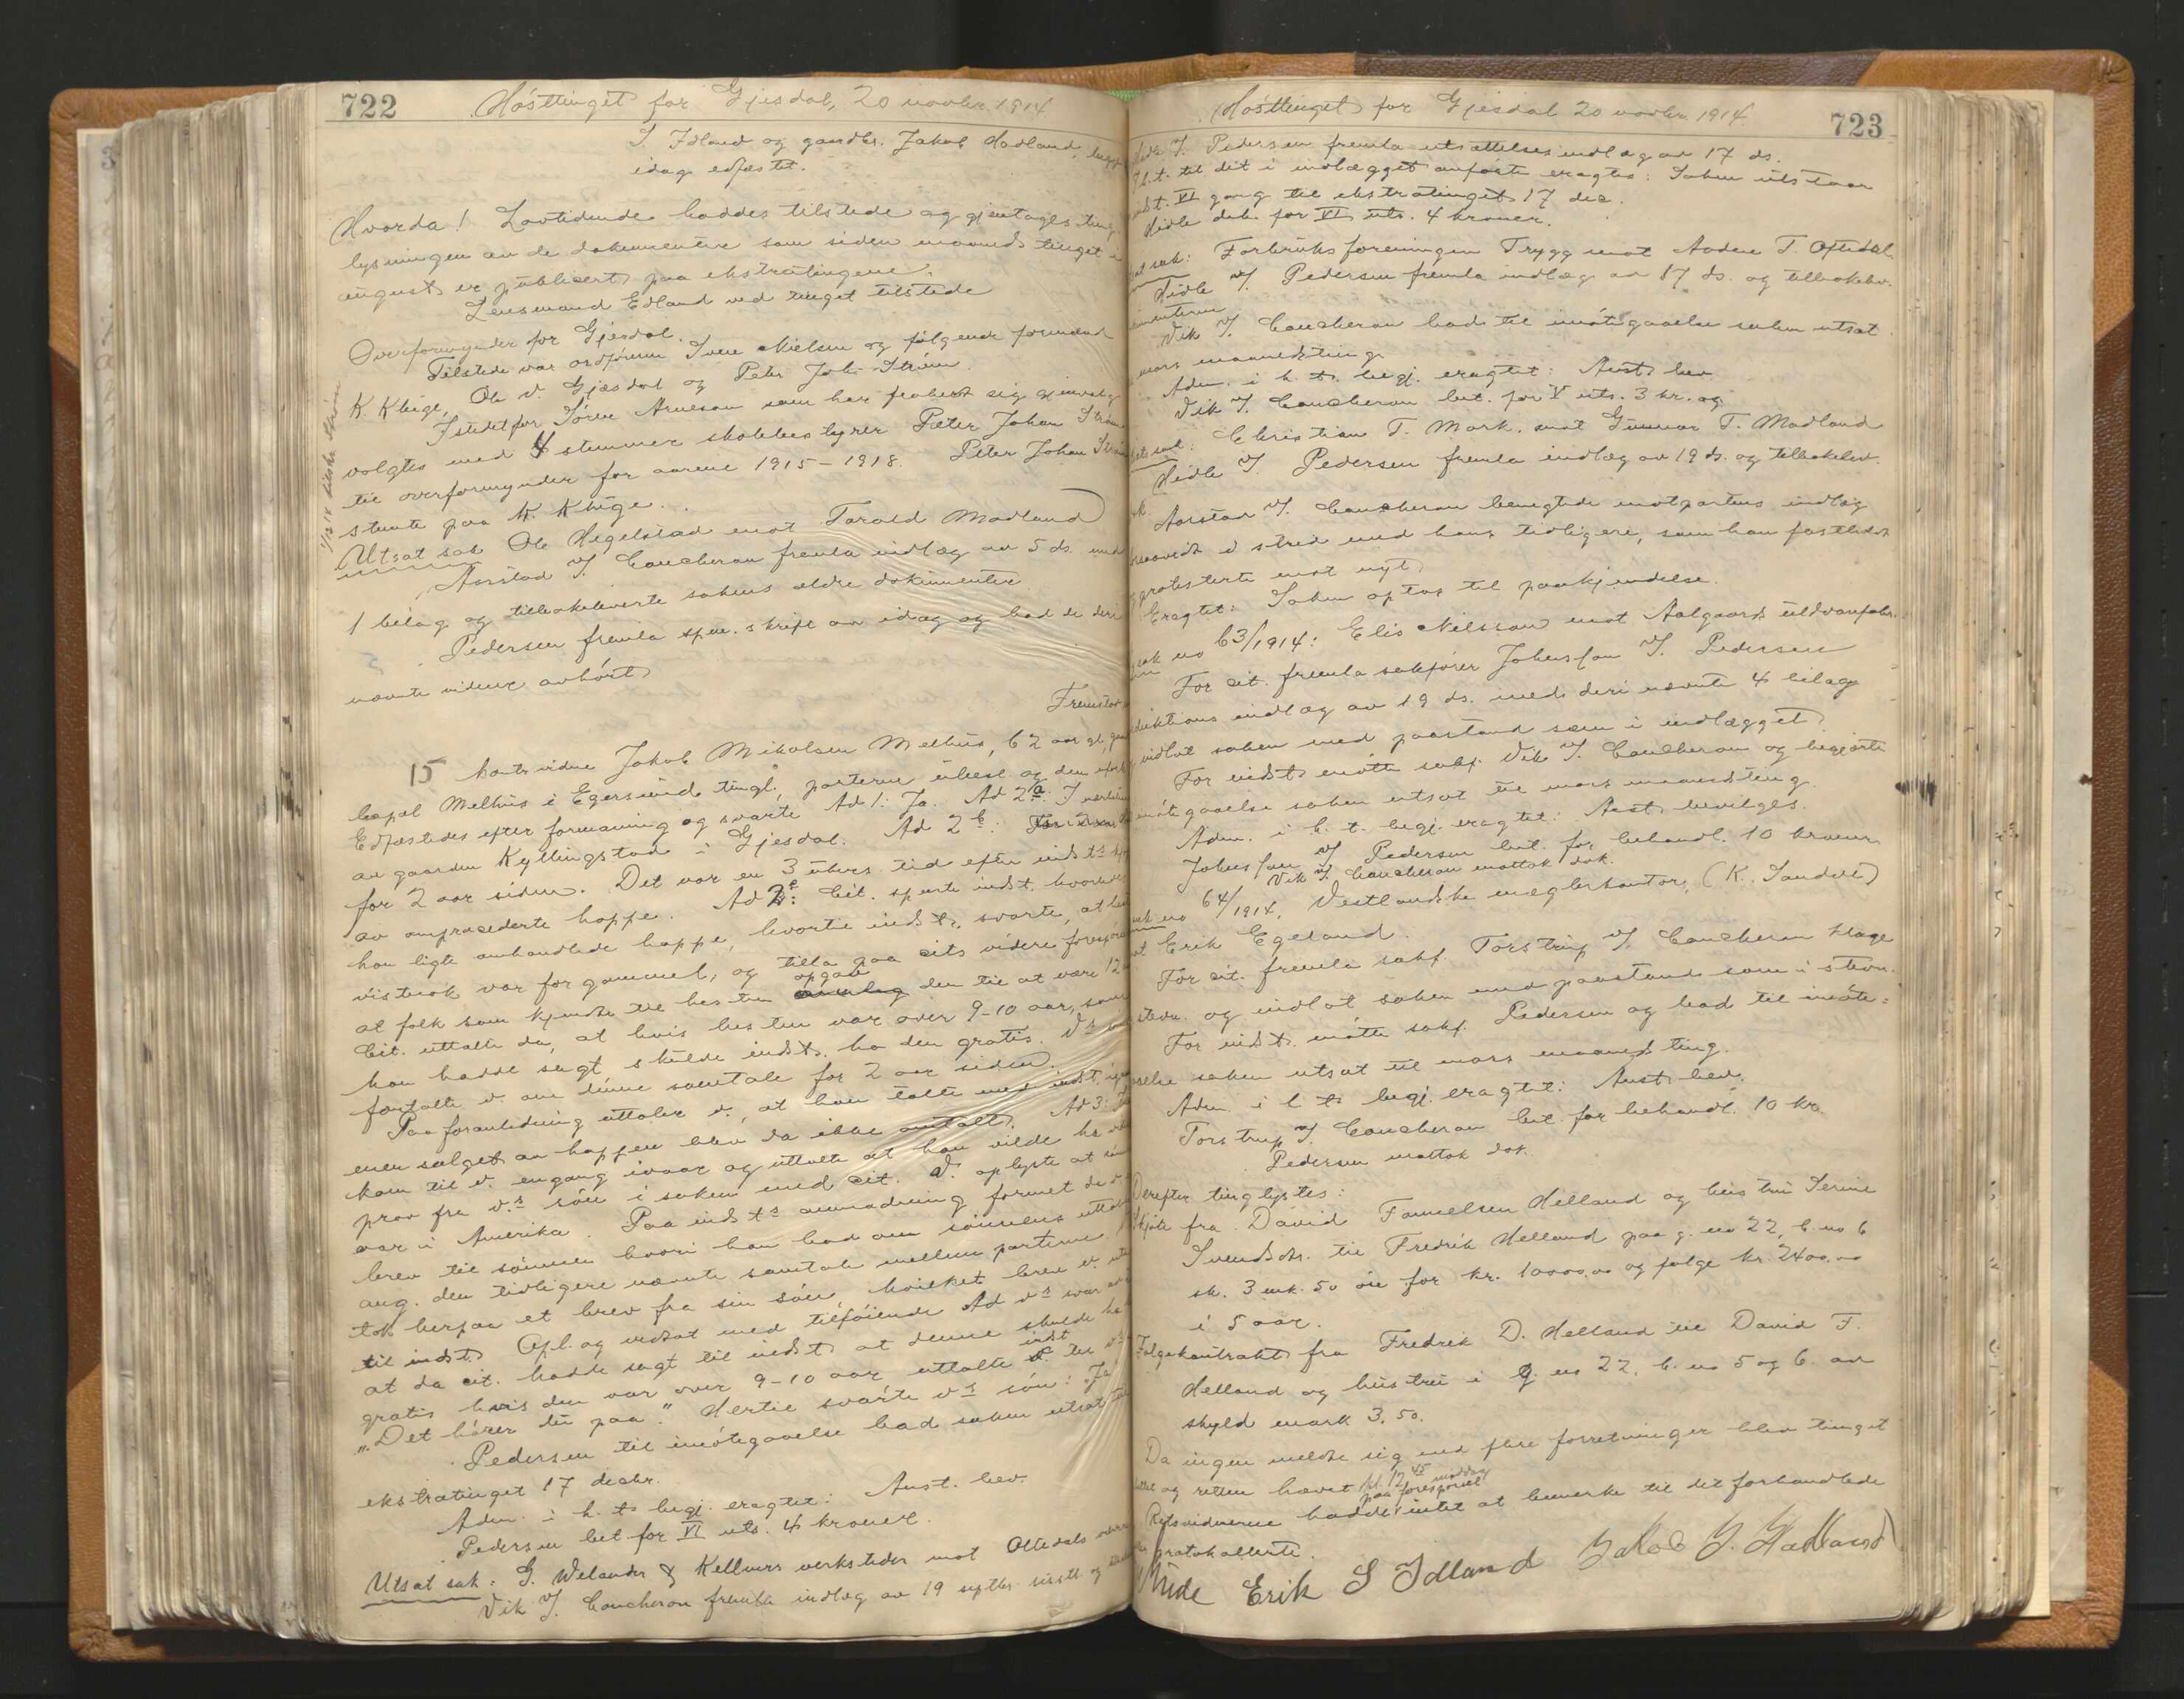 722 Hösttinget for Gjesdal, 20 novbr. 1914
I. Idland og gaardbr. Jakob Hadland, begge
idag edfæstet.
Hvorda! Lovtidende haddes tilstede og gjentages ting
lysningen av de dokumenter som siden maanedstinget i
august er publicert paa ekstratingene.
Lensmand Edland ved tinget tilstede
Overformynder for Gjesdal.
Tilstede var ordføreren Iver Nielsen og følgende formænd
K. Kluge, Ole V. Gjesdal og Peter Joh. Strøm.
Istedetfor Søren Arneson som har frabedt sig gjenvalg
valgtes med 4 stemmer skolebestyrer Peter Johan Strøm
til overformynder for aarene 1915-1918. Peter Johan Strøm
stemte paa K. Kluge.
Utsat sak Ole Hegelstad mot Tarald Madland
Aarstad v/ Caucheron fremla indlæg av 5 ds. med
1 bilag og tilbakeleverte sakens ældre dokumenter
Pedersen fremla spm. skrift av idag og bad de deri
nævnte vidner avhørt
Fremstod
15 hovtr vidne Jakob Mikalsen Melhus, 62 aar gl.
bopæl Melhus i Egersund tingl., parterne ubesl. og dem uforb.
Edfæstedes efter formaning og svarte Ad 1: Ja. Ad 2a: I nærheten
av gaarden Kyllingstad i Gjesdal. Ad 2b:
for 2 aar siden. Det var en 3 ukers tid efter indsts kjøp
av omprocederte hoppe. Ad 2c: Cit. spurte indst. hvordan
han ligte omhandlede hoppe, hvortil indst. svarte, at hun
vistnok var for gammel, og tilla paa cits videre forespørsel
at folk som kjendte til hesten opgav den til at være 12
Cit. uttalte da, at hvis hesten var over 9-10 aar, som
han hadde sagt, skulde indst. ha den gratis. Vs
fortalte v. om denne samtale for 2 aar siden.
Paa foranledning uttaler v., at han talte med indst. igjen
men salget av hoppen blev da ikke omtalt. Ad 3: Indst.
kom til v. engang ivaar og uttalte at han vilde ha
prov fra v.s søn i saken med cit. V. oplyste at søn
var i Amerika. Paa indsts anmodning formet da v.
brev til sønnen hvori han bad om sønnens uttalelse
ang. den tidligere nævnte samtale mellem parterne.
tok herpaa et brev fra sin søn, hvilket brev v.
til indst. Opl. og vedtat med tilføiende Ad vs svar
at da cit. hadde sagt til indst. at denne skulde ha
gratis hvis den var over 9-10 aar uttalte indst til
"Det hører du paa." Hertil svarte vs søn: "Ja
Pedersen til imøtegaaelse bad saken utsat til
ekstratinget 17 decbr.
Adm. i h. t. begj. eragtet: Anst. bev.
Pedersen bet. for VI uts. 4 kroner.
Utsat sak: G. Welander & Kellners verksteder mot Oltedals
Vik v/ Caucheron fremla indlæg av 19 septbr. sisstl. og
Hösttinget for Gjesdal 20 novbr. 1914. 723
Hidle v/ Pedersen fremla utsættelsesindlæg av 17 ds.
I h. t. til det i indlægget anførte eragtes: Saken utstaar
indst. VI gang til ekstratinget 17 dec.
Hidle bet. for VI uts. 4 kroner.
Utsat sak: Forbruksforeningen Trygg mot Aadne T. Oftedal.
Hidle v/ Pedersen fremla indlæg av 17 ds. og tilbakelev.
dokumenterne
Vik v/ Caucheron bad til imøtegaaelse saken utsat
til mars maanedsting.
Adm. i h. t. begj. eragtet: Anst. bev.
Vik v/ Caucheron bet. for V uts. 3 kr. og
Utsat sak: Christian T. Mork. mot Gunnar T. Madland
Hidle v/ Pedersen fremla indlæg av 19 ds. og tilbakelev.
dok.
Aarstad v/ Caucheron benegtede motpartens indlæg
forsaavidt i strid med hans tidligere, som han fastholdt
og protesterte mot nyt.
Eragtet: Saken optas til paakjendelse.
sak no 63/1914: Elis Nilsson mot Aalgaards uldvarefabr.
For cit. fremla sakfører Johnsson v/ Pedersen
deduktions indlæg av 19 ds. med deri nævnte 4 bilag
og indlot saken med paastand som i indlægget
For indst. møtte sakf. Vik v/ Caucheron og begjærte
til imøtegaaelse saken utsat til mars maanedsting.
Adm. i h. t. begj. eragtet: Anst. bevilges.
Johnsson v/ Pedersen bet. for behandl. 10 kroner
Vik v/ Caucheron mottok dok.
sak no 64/1914. Vestlandske mæglerkontor, (K. Sandvil)
mot Erik Egeland.
For cit. fremla sakf. Torstrup v/ Caucheron klage
stevn. og indlot saken med paastand som i stevn.
For indst. møtte sakf. Pedersen og bad til imøte=
gaaelse saken utsat til mars maanedsting.
Adm. i h. t. begj. eragtet: Anst. bev.
Torstrup v/ Caucheron bet. for behandl. 10 kr.
Pedersen mottok dok.
Derefter tinglystes:
Skjøte fra David Hansen Helland og hustru Serine
Svendsdtr. til Fredrik Helland paa g. no 22, b. no 6
sk. 3 mk. 50 øre for kr. 10000.00 og følge kr. 2400.00
i 5 aar.
Følgekontrakt fra Fredrik D. Helland til David F.
Helland og hustru i g. no 22, b. no 5 og 6. av
skyld mark 3.50.
Da ingen meldte sig med flere forretninger blev tinget
sluttet og retten hævet kl. 12 45 middag
Retsvidnerne hadde paa forespørsel intet at bemerke til det forhandlede
eller protokollerte.
Erik S Idland Jakob J. Hadland